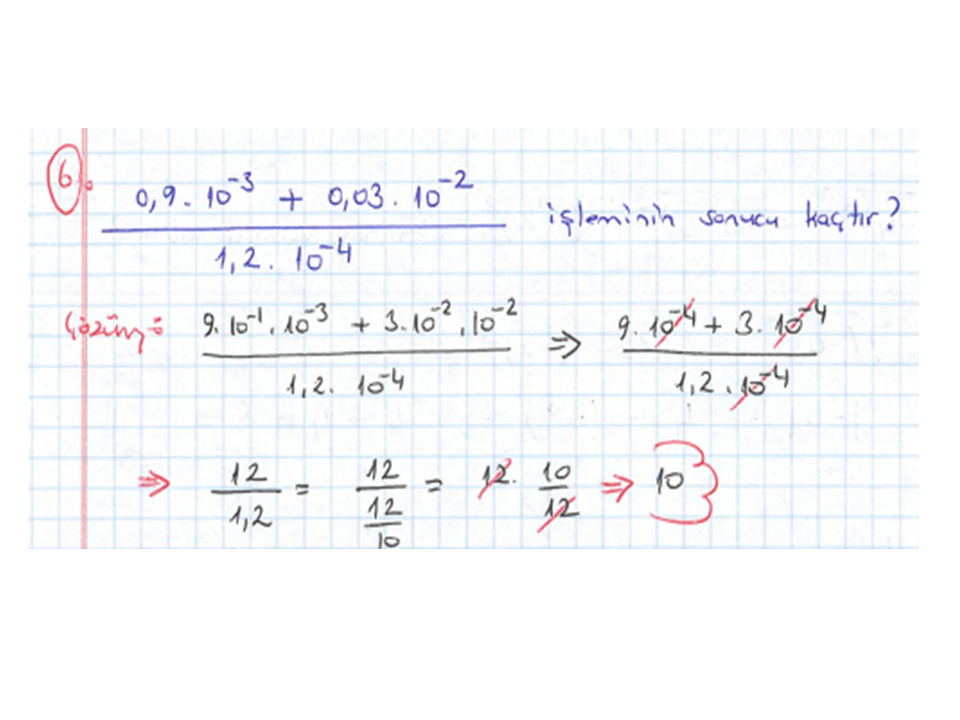 6. (0,9 . 10⁻³ + 0,03 . 10⁻²) / (1,2 . 10⁻⁴) işleminin sonucu kaçtır?
Çözüm: (9 . 10⁻¹ . 10⁻³ + 3 . 10⁻² . 10⁻²) / (1,2 . 10⁻⁴) ⇒ (9 . 10⁻⁴ + 3 . 10⁻⁴) / (1,2 . 10⁻⁴)
⇒ 12 / 1,2 = 12 / (12 / 10) = 12 . 10 / 12 ⇒ 10